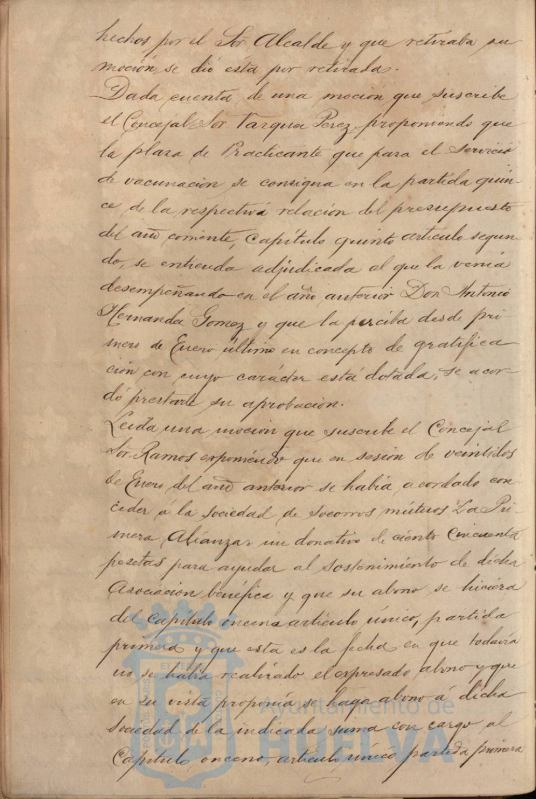 hechos por el Sor Alcalde y que retiraba su
moción se dió esta por retirada.
Dada cuenta de una mocion que suscribe
el Concejal Sor Vazquez Perez proponiendo que
la plaza de Practicante que para el servicio
de vacunacion se consigna en la partida quin
ce de la respectiva relación del presupuesto
del año corriente, Capítulo quinto artículo segun
do, se entienda adjudicada al que la venía
desempeñando en el año anterior Don Antonio
Hernandez Gomez y que la perciba desde pri
mero de Enero ultimo en concepto de gratifica
ción con cuyo carácter está dotada, se acor
dó prestarle su aprobación.
Leida una moción que suscribe el Concejal
Sor Ramos exponiendo que en sesión de veintidos
de Enero del año anterior se había acordado con
ceder a la sociedad de socorros mútuos "La Pri
mera Alianza" un donativo de ciento cincuenta
pesetas para ayudar al sostenimiento de dicha
Asociación benéfica y que su abono se hiciera
del Capítulo onceno artículo único, partida
primera y que esta es la fecha en que todavía
no se había realizado el expresado abono y que
en su vista proponía se haga abono á dicha
sociedad de la indicada suma con cargo al
Capítulo onceno, artículo único partida primera
Ayuntamiento de
HUELVA